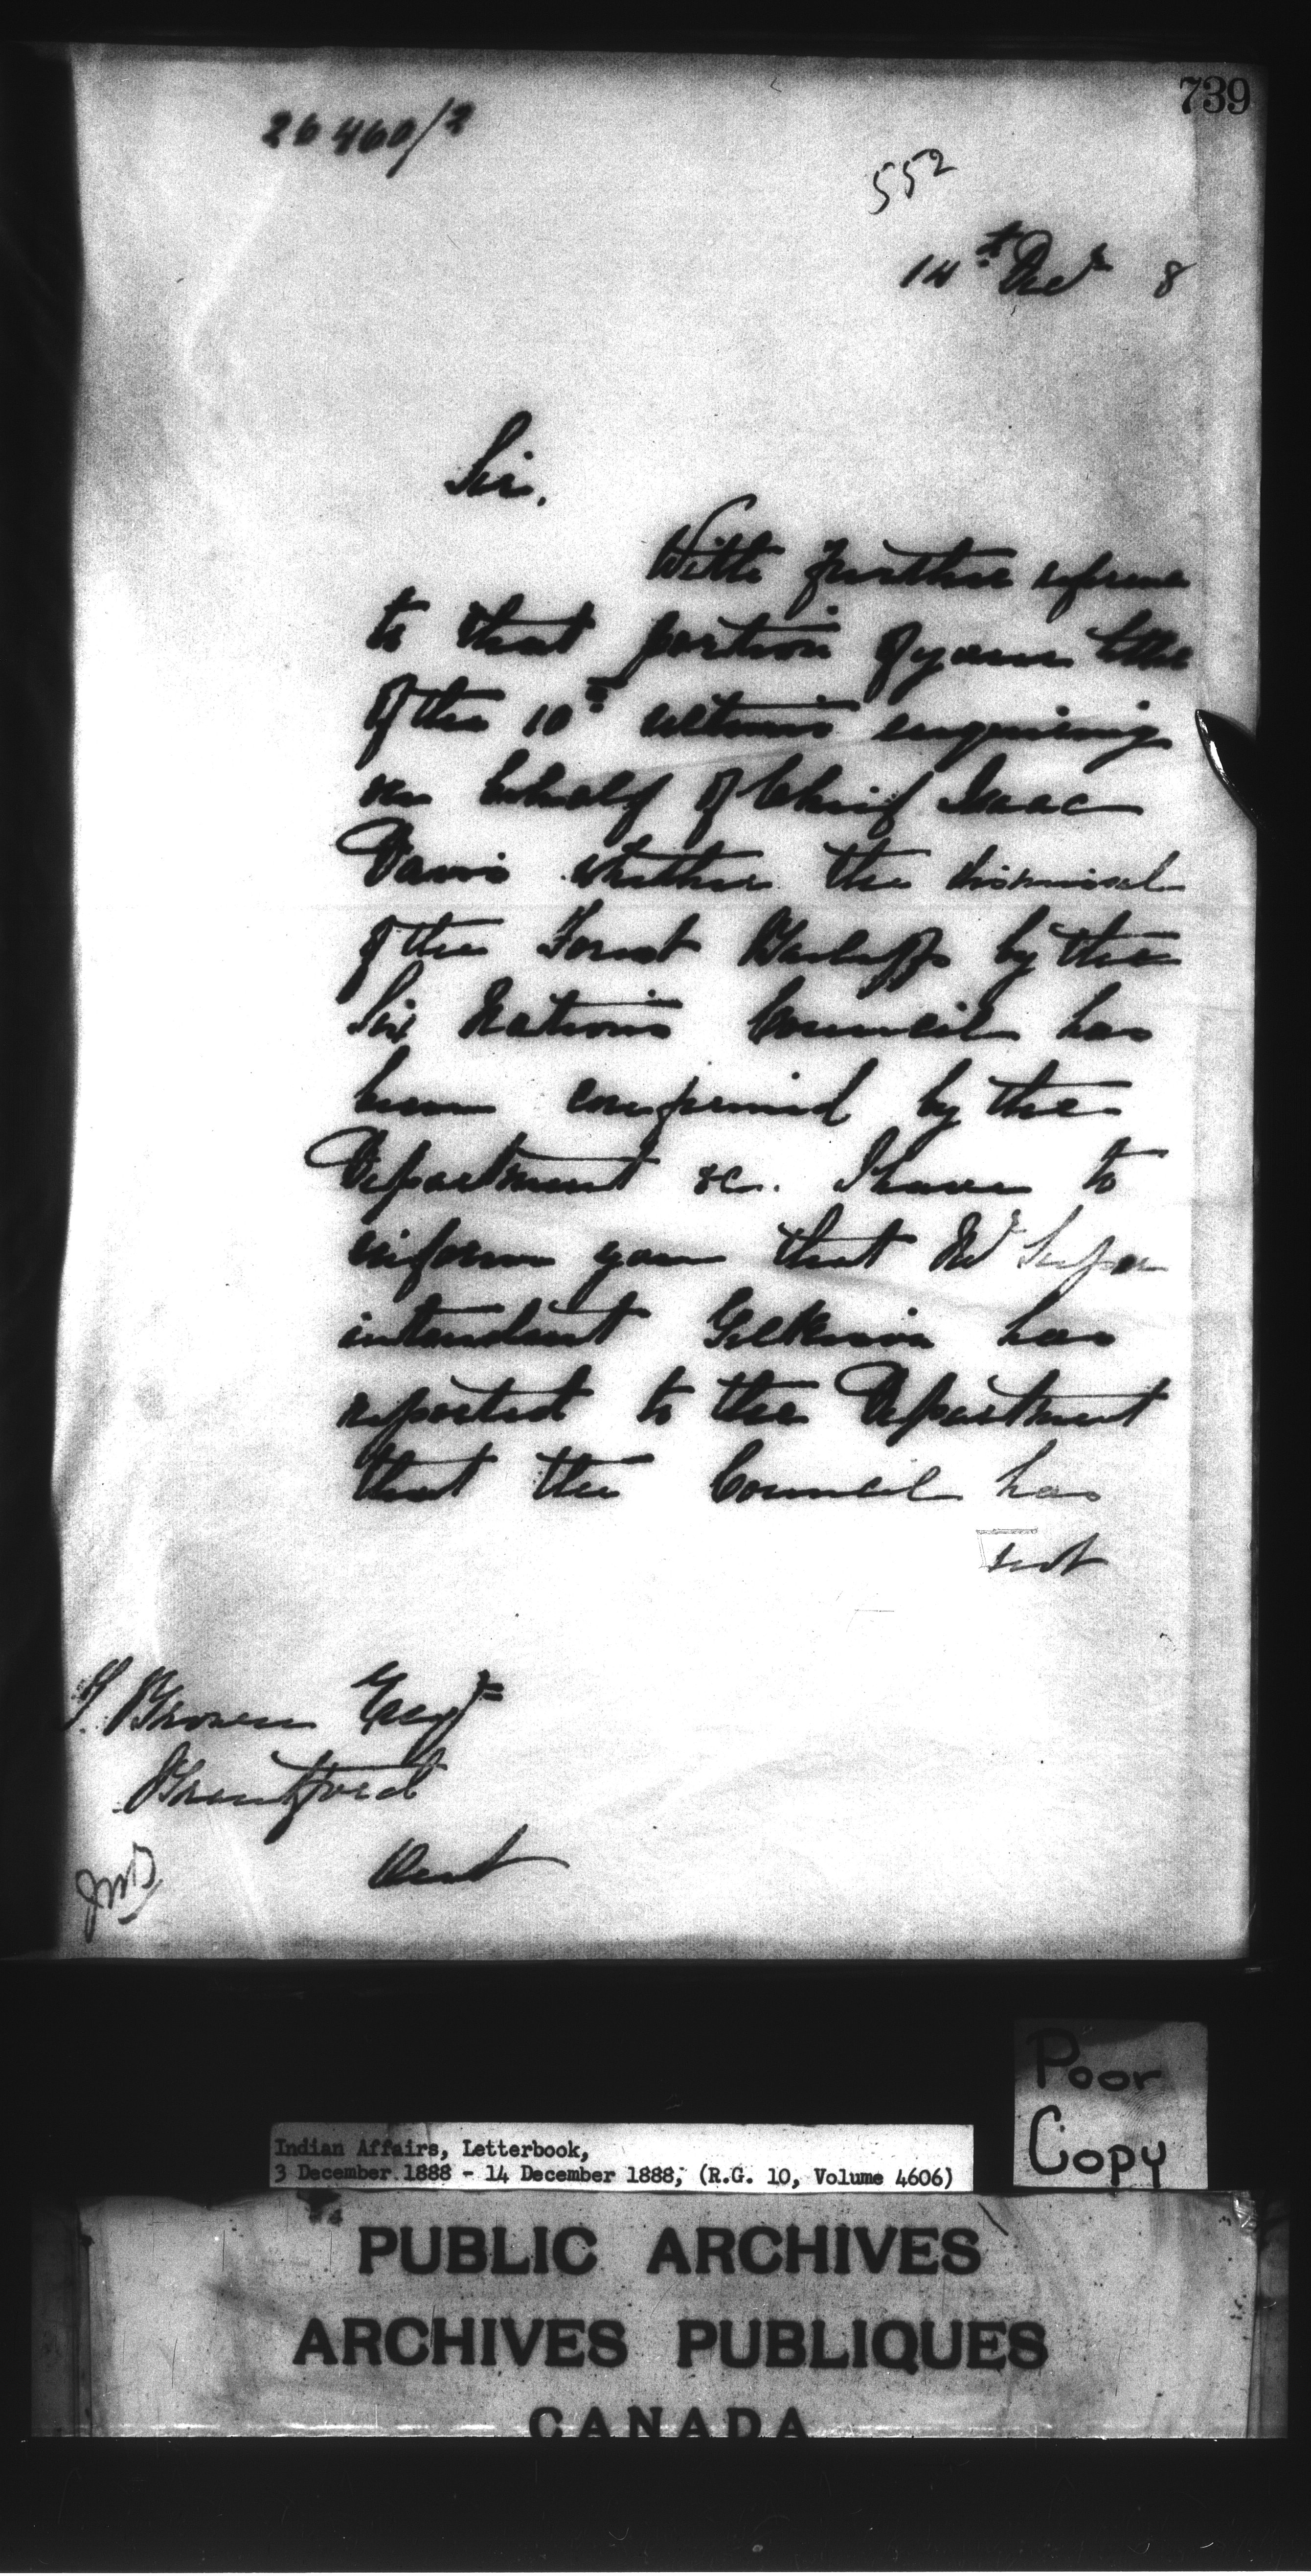 739
26460/2
552
14th Decr 8
Sir,
With further reference
to that portion of your letter
of the 10th ultimo enquiring
on behalf of Chief Isaac
Davis whether the dismissal
of the Forest Bailiffs by the
Six Nations Council has
been confirmed by the
Department &c. I have to
inform you that Vis. Super
intendent Gilkison has
reported to the Department
that the Council has
not
Brown Esqr
Brantford
Ont
JWB
Poor
Copy
Indian Affairs, Letterbook,
3 December 1888 - 14 December 1888, (R.G. 10, Volume 4606)
PUBLIC ARCHIVES
ARCHIVES PUBLIQUES
CANADA